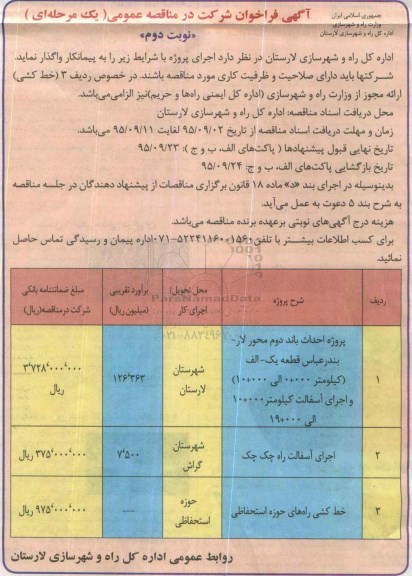 جمهوری اسلامی ایران
وزارت راه و شهرسازی
اداره کل راه و شهرسازی لارستان
آگهی فراخوان شرکت در مناقصه عمومی( یک مرحله‌ای )
«نوبت دوم»
اداره کل راه و شهرسازی لارستان در نظر دارد اجرای پروژه با شرایط زیر را به پیمانکار واگذار نماید.
شــرکتها باید دارای صلاحیت و ظرفیت کاری مورد مناقصه باشند. در خصوص ردیف ۳ (خط کشی)
ارائه مجوز از وزارت راه و شهرسازی (اداره کل ایمنی راه‌ها و حریم)نیز الزامی‌می‌باشد.
محل دریافت اسناد مناقصه: اداره کل راه و شهرسازی لارستان
زمان و مهلت دریافت اسناد مناقصه از تاریخ ۹۵/۰۹/۰۲ لغایت ۹۵/۰۹/۱۱ می‌باشد.
تاریخ نهایی قبول پیشنهادها ( پاکت‌های الف، ب و ج ): ۹۵/۰۹/۲۳
تاریخ بازگشایی پاکت‌های الف، ب و ج: ۹۵/۰۹/۲۴
بدینوسیله در اجرای بند «د» ماده ۱۸ قانون برگزاری مناقصات از پیشنهاد دهندگان در جلسه مناقصه
به شرح بند ۵ دعوت به عمل می‌آید.
هزینه درج آگهی‌های نوبتی برعهده برنده مناقصه می‌باشد.
برای کسب اطلاعات بیشــتر با تلفن ۱۵۶۰-۵۲۲۴۱۱۶۰-۰۷۱اداره پیمان و رسیدگی تماس حاصل
نمائید.
ردیف
شرح پروژه
محل تحویل/
اجرای کار
برآورد تقریبی
(میلیون ریال)
مبلغ ضمانتنامه بانکی
شرکت درمناقصه(ریال)
۱
پروژه احداث باند دوم محور لار-
بندرعباس قطعه یک-الف
(کیلومتر ۰۰۰+۰ الی ۰۰۰+۱۰)
و اجرای آسفالت کیلومتر ۰۰۰+۱۰
الی ۰۰۰+۱۹
شهرستان
لارستان
۱۲۶٬۳۶۳
۳٬۷۲۸٬۰۰۰٬۰۰۰
ریال
۲
اجرای آسفالت راه چک چک
شهرستان
گراش
۷٬۵۰۰
۳۷۵٬۰۰۰٬۰۰۰ ریال
۳
خط کشی راه‌های حوزه استحفاظی
حوزه
استحفاظی
---
۹۷۵٬۰۰۰٬۰۰۰ ریال
روابط عمومی اداره کل راه و شهرسازی لارستان